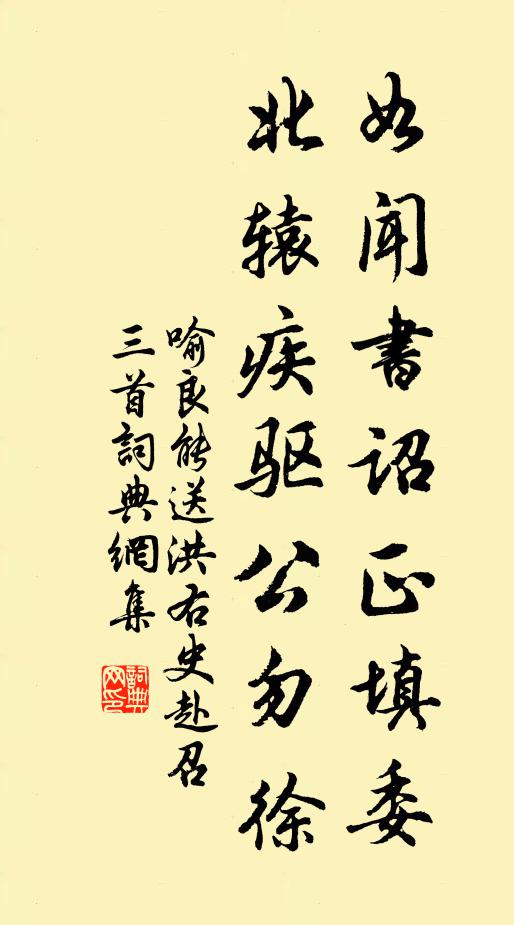 如闻書诏正填委
北辕疾驱公勿徐
喻良能送洪右史赴召
三首詞典網集
詞典网印